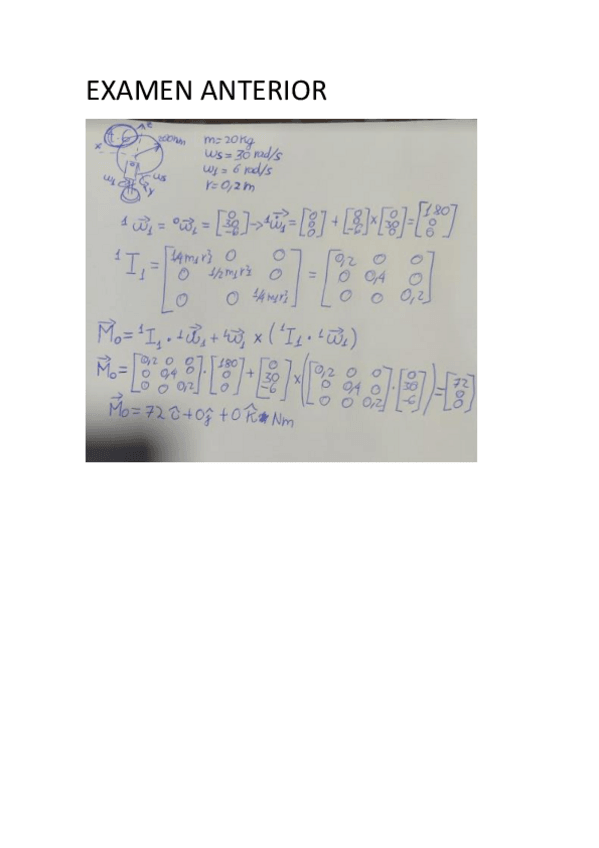 EXAMEN ANTERIOR
t-6
z
x
200mm
y
ωs
ω1
m=20kg
ωs=30 rad/s
ω1=6 rad/s
r=0,2m
¹ω⃗₁ = ⁰ω⃗₁ = [0 30 -6] → ¹ω̇⃗₁ = [0 0 0] + [0 0 -6] × [0 30 0] = [180 0 0]
¹I₁ = [1/4m₁r₁² 0 0; 0 1/2m₁r₁² 0; 0 0 1/4m₁r₁²] = [0,2 0 0; 0 0,4 0; 0 0 0,2]
M⃗o = ¹I₁ · ¹ω̇⃗₁ + ¹ω⃗₁ × (¹I₁ · ¹ω⃗₁)
M⃗o = [0,2 0 0; 0 0,4 0; 0 0 0,2] · [180 0 0] + [0 30 -6] × ([0,2 0 0; 0 0,4 0; 0 0 0,2] · [0 30 -6]) = [72 0 0]
M⃗o = 72 î + 0 ĵ + 0 k̂ Nm